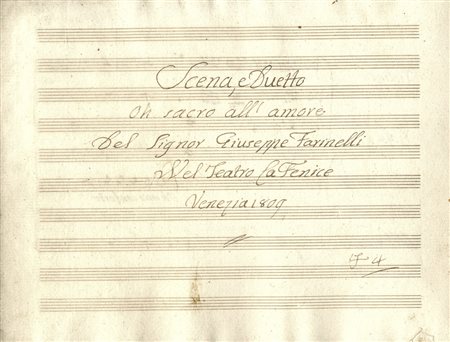 Scena, e Duetto
Oh sacro all' amore
Del Signor Giuseppe Farinelli
Nel Teatro La Fenice
Venezia 1809
F 4